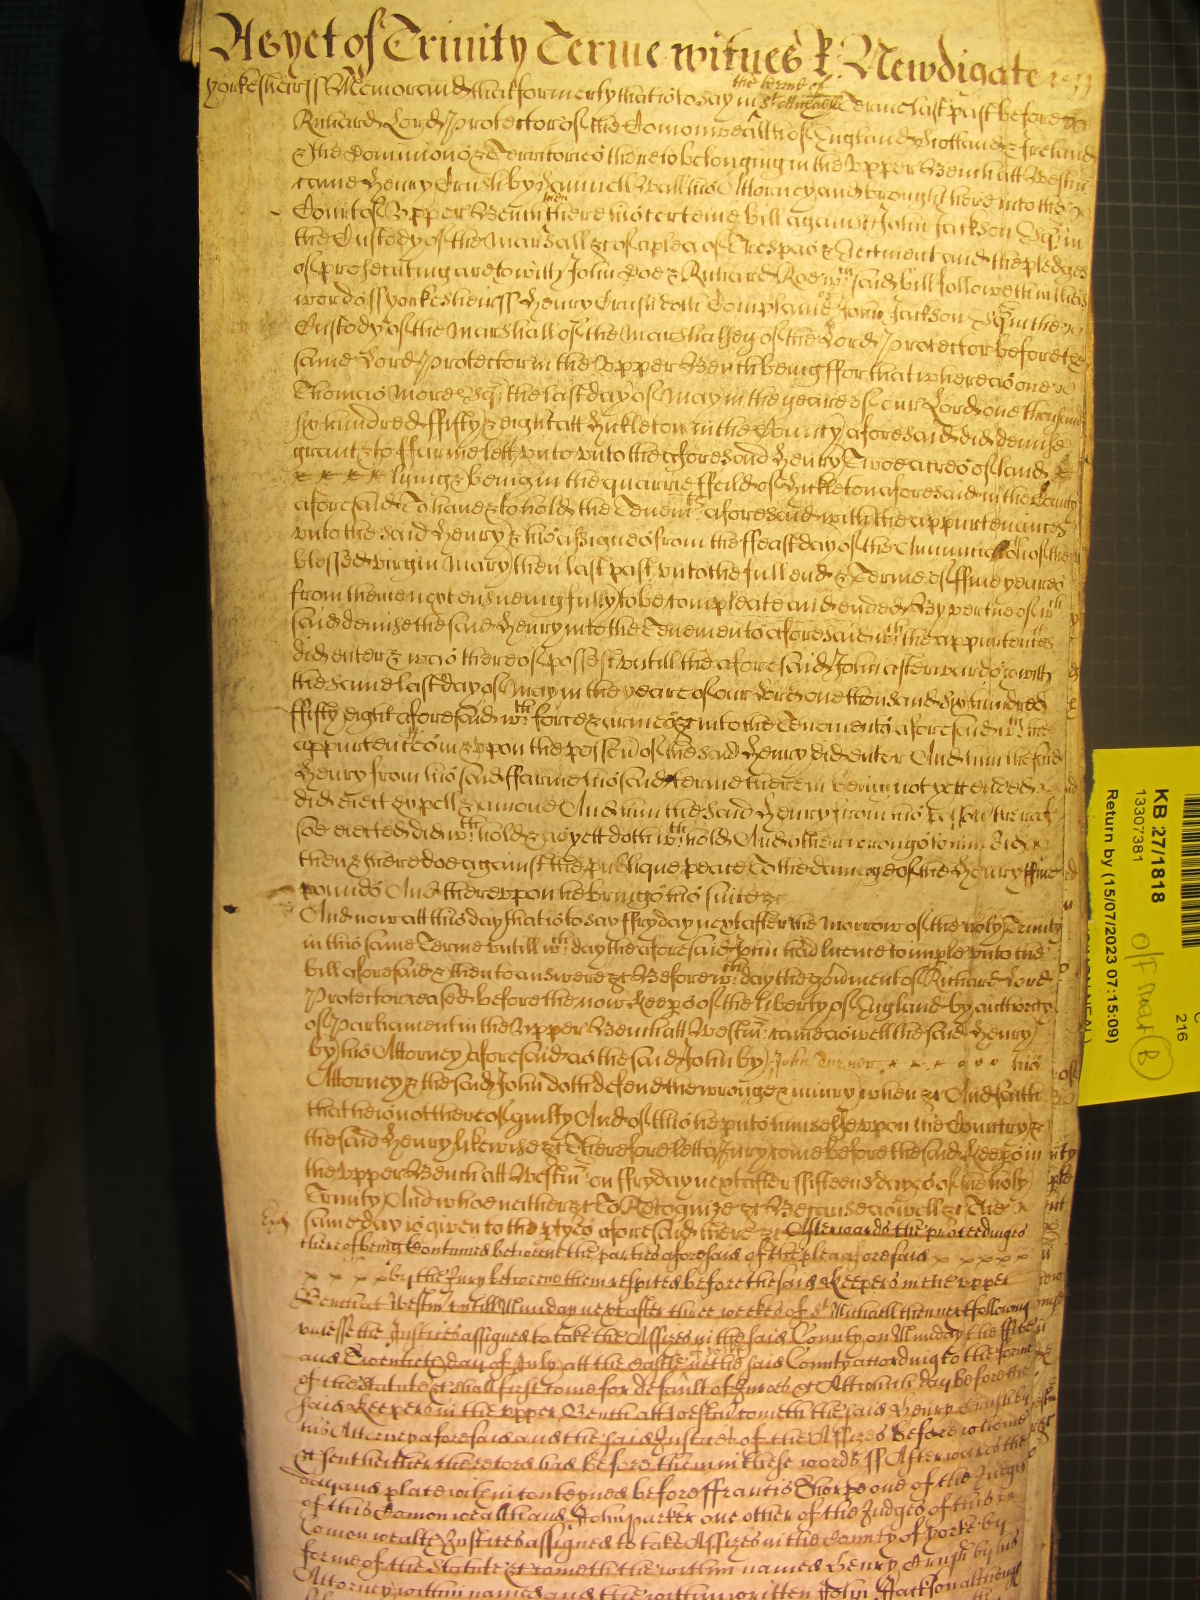 As yet of Trinity Terme witnes R: Newdigate
Yorkesheire ss Memorand that formerly that is to say in the terme of St Michael Terme last past before
Richard Lord Protector of the Comonwealth of England Scotland & Ireland
& the Dominions & Territories thereto belonging in the Upper Bench att Westm
came Henry by Samuell Wall his Attorney and brought here into the
Court of Upper Bench then there his certeine bill against John Jackson Esq in
the Custody of the Marshall &c of a plea of Trespas & Ejectment and the pledges
of prosecuting are to witt John Doe & Richard Roe wch said bill followeth in these
words ss Yorkesheire ss Henry doth Complaine of John Jackson Esq in the
Custody of the Marshall of the Marshalsey of the Lord Protector before the
same Lord Protector in the Upper Bench being ffor that whereas one
Thomas More Esq the last day of May in the yeare of our Lord one thousand
six hundred ffifty & eight att Hickleton in the County aforesaid did demise
grant & to ffarme lett unto the aforesaid Henry Two acres of land
x x x x lying & being in the quarrie ffeild of Hickleton aforesaid in the County
aforesaid To have & to hold the Tenemts aforesaid with the appurtenances
unto the said Henry & his assignes from the ffeast day of the Annunciation of the
blessed virgin Mary then last past unto the full end & Terme of ffive yeares
from thence next ensueing fully to be compleate and ended By vertue of wch
said demise the said Henry into the Tenements aforesaid wth the appurtences
did enter & was thereof possest untill the aforesaid John afterwards to witt
the same last day of May in the yeare of our Lord one thousand six hundred
ffifty eight aforesaid wth force & armes &c into the Tenements aforesaid wth the
appurtences in & upon the possession of the said Henry did enter And him the said
Henry from his said ffarme his said terme therein being not yett ended
did eject expell & amove And him the said Henry from his possession thereof
soe ejected did wth hold & as yett doth wth hold And other wrongs to him did
then & there doe against the publique peace To the damage of the Henry ffive
pounds And thereupon he brings his suite &c
And now att this day that is to say ffryday next after the morrow of the holy Trinity
in this same Terme untill wch day the aforesaid John had licence to imple unto the
bill aforesaid & then to answere &c Before wch day the governmt of Richard Lord
Protector ceased before the now Keepers of the liberty of England by authority
of Parliament in the Upper Bench att Westm came aswell the said Henry
by his Attorney aforesaid as the said John by John Turner his
Attorney & the said John doth defend the wrong & injury when &c And saith
that he is not thereof guilty And of this he puts himselfe upon the Country &
the said Henry likewise &c Therefore lett a Jury come before the said Keepers in
the Upper Bench att Westm on ffryday next after ffifteene dayes of the holy
Trinity And who neither &c To Recognize &c Because aswell &c The
same day is given to the ptyes aforesaid there &c Afterwards the proceedings
thereof being Continued betweene the parties aforesaid of the plea aforesaid x x x x x
x x x x by the Jury betweene them respited before the said Keepers in the upper
Bench att Westm untill Munday next after three weekes of St Michaell then next following
unlesse the Justices assigned to take the Assizes in the said County on Munday the
and Twentieth day of July att the Castle of Yorke in the said County according to the forme
of the statute &c shall first come for default of Jurors &c Att which day before the
said Keepers in the upper Bench att westm cometh the said Henry by
his Attorney aforesaid and the said Justices of the Assizes before whome
&c sent hither there record had before them in these words ss Afterwards the
day and place within conteyned before ffrancis Thorpe one of the Judges
of this Comonwealth and John Parker one other of the Judges of this
Comonwealth Justices assigned to take Assizes in the County of Yorke by
forme of the Statute &c cometh the within named Henry by his
Attorney within named and the within written John Jackson although
KB 27/1818
13307381
Return by (15/07/2023 07:15:09)
216